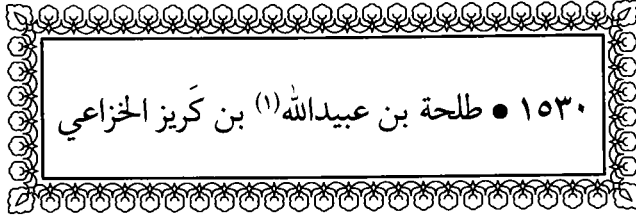 ١٥٣٠ ● طلحة بن عبيدالله(١) بن كَريز الخزاعي